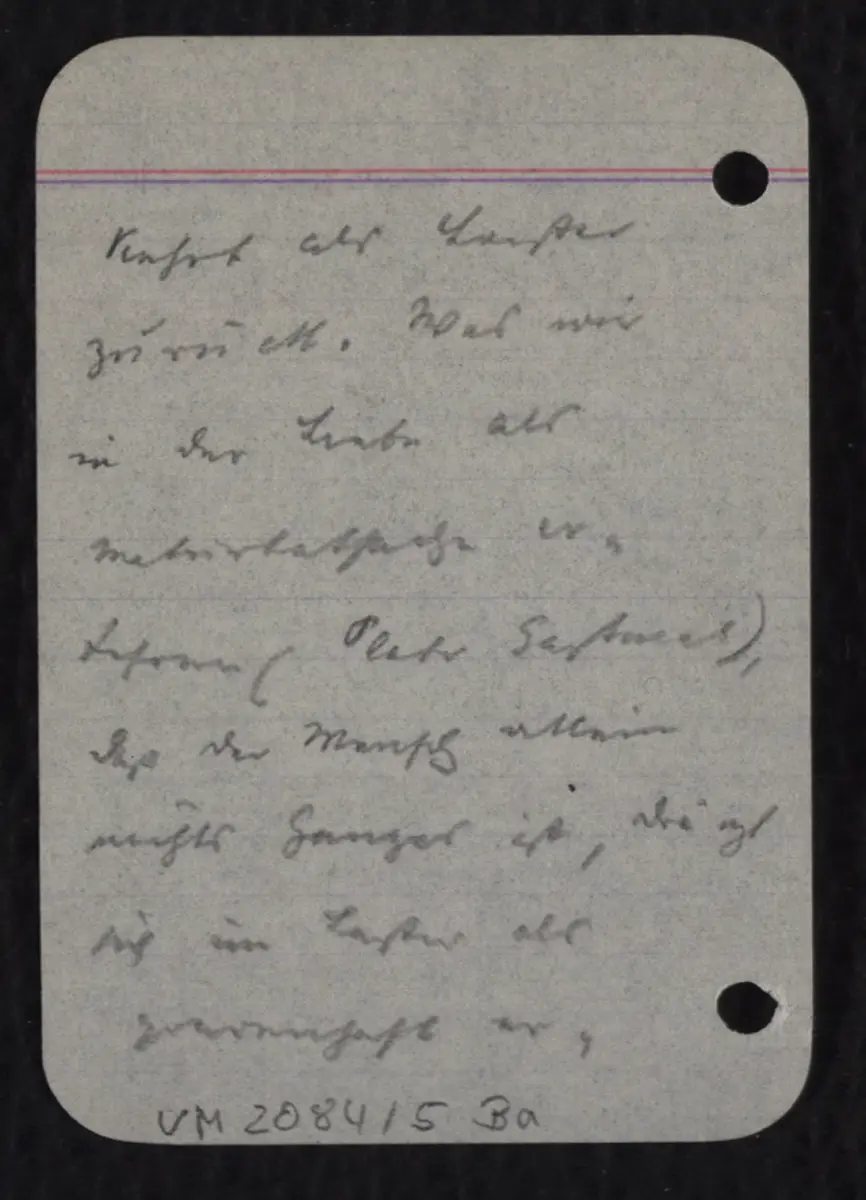 kehrt als Laster
zurück. Was wir
in der Liebe als
Naturtatsache er-
fahren (Plato Gastmal),
daß der Mensch allein
nichts Ganzes ist, drängt
sich im Laster als
grauenhaft er-
VM 2084/5 Ba